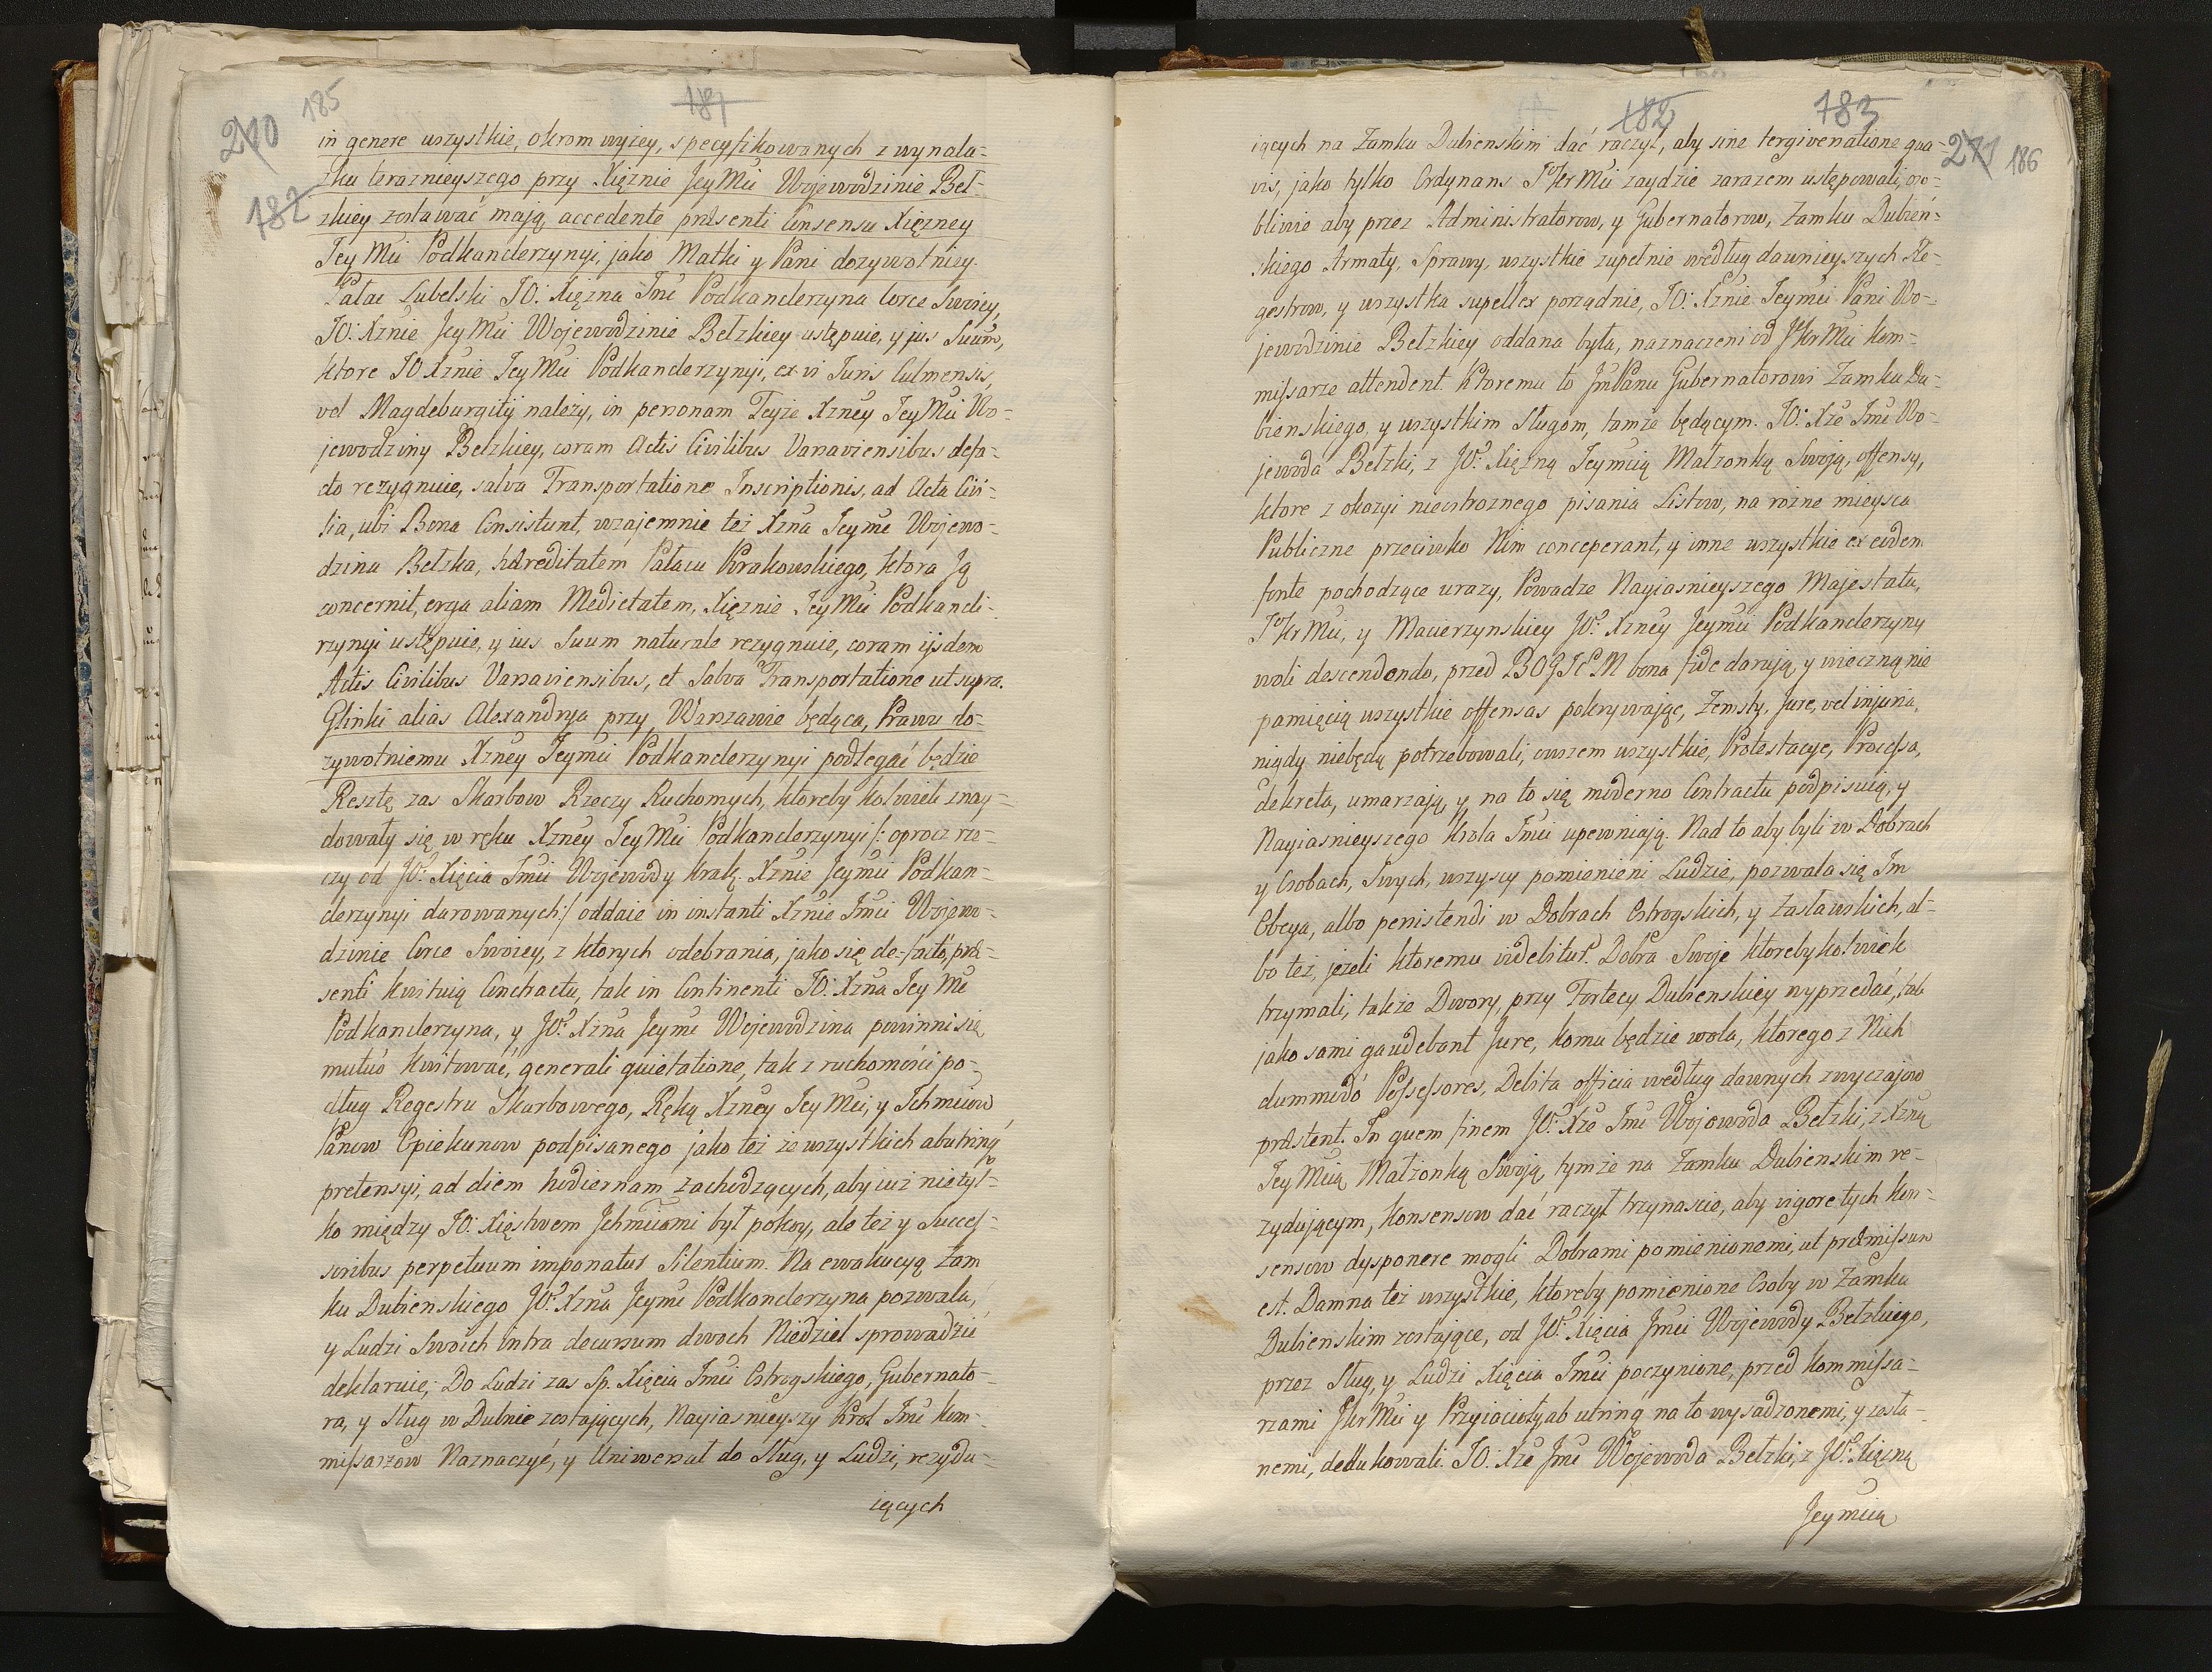 210 185 181
182
in genere wszystkie, okrom wyżey, specyfikowanych z wynala-
zku teraznieyszego przy Xiężnie JeyMci Wojewodzinie Bel-
zkiey zostawać mają, accedente præsenti Consensu Xiężney
JeyMci Podkanclerzynyi, jako Matki y Pani dozywotniey.
Pałac Lubelski JO: Xiężna Jmć Podkanclerzyna Corce Swoiey,
JO: Xżnie JeyMci Wojewodzinie Bełzkiey ustępuie, y jus Suum,
ktore JO Xżnie JeyMci Podkanclerzynyi, ex vi Juris Culmensis,
vel Magdeburgitÿ należy, in personam Teyże Xżney JeyMci Wo-
jewodziny Bełzkiey, coram Actis Civilibus Varsaviensibus defa-
cto rezygnuie, salva Transportatione Inscriptionis, ad Acta Civi-
lia, ubi Bona Consistunt, wzajemnie też Xżna Jeymć Wojewo-
dzina Bełzka, hæreditatem Pałacu Krakowskiego, ktora Ją
concernit, erga aliam Medietatem, Xiężnie JeyMci Podkancle-
rzynyi ustępuie, y ius Suum naturale rezygnuie, coram iisdem
Actis Civilibus Varsaviensibus, et Salva Transportatione ut supra.
Glinki alias Alexandrya przy Warszawie będąca, Prawu do-
zywotniemu Xżney Jeymci Podkanclerzynyi podlegać będzie
Resztę zas Skarbow Rzeczy Ruchomych, ktoreby kolwiek znay-
dowały się w ręku Xżney JeyMci Podkanclerzynyi /: oprocz rze-
czy od JO: Xięcia Jmci Wojewody Krak: Xżnie Jeymci Podkan-
clerzynyi darowanych :/ oddaie in instanti Xżnie Jmci Wojewo-
dzinie Corce Swoiey, z ktorych odebrania, jako się de-facto, præ-
senti kwituią Contractu, tak in Continenti JO: Xżna JeyMć
Podkanclerzyna, y JO: Xżna Jeymć Wojewodzina powinni się
mutuó kwitować, generali quietatione, tak z ruchomości po-
dług Regestru Skarbowego, Ręką Xżney JeyMci, y Ichmciów
Panow Opiekunow podpisanego jako też ze wszystkich abutrinq
pretensyi, ad diem hodiernam zachodzących, aby iuż nietyl-
ko między JO: Xięstwem Ichmciami był pokoy, ale też y Succes-
soribus perpetuum imponatur Silentium. Na ewakucyą Zam
ku Dubienskiego JO: Xżna Jeymć Podkanclerzyna pozwala,
y Ludzi Swoich intra decursum dwoch Niedziel sprowadzić
deklaruie; Do Ludzi zas Sp. Xięcia Jmci Ostrogskiego, Gubernato-
ra, y Sług w Dubnie zostających, Nayiasnieyszy Krol Jmć Kom-
missarzow Naznaczyć, y Uniwersał do Sług, y Ludzi, rezydu-
iących
182 183
271 186
iących na Zamku Dubienskim dać raczył, aby sine tergiversatione qua-
vis, jako tylko Ordynans JKrMci zaydzie zarazem ustępowali, oso-
bliwie aby przez Administratorow, y Gubernatorow, Zamku Dubień-
skiego Armaty, Sprawy, wszystkie zupełnie według dawnieyszych Re-
gestrow, y wszystka supellex porządnie, JO: Xżnie Jeymci Pani Wo-
jewodzinie Bełzkiey oddana była, naznaczeni od JKrMci Kom-
missarze attendent. Ktoremu to JmPanu Gubernatorowi Zamku Du-
bienskiego, y wszystkim Sługom, tamże będącym. JO: Xże Jmć Wo-
jewoda Bełzki, z JO: Xiężną Jeymcią Małżonką Swoją, offensy,
ktore z okazyi nieostroznego pisania Listow, na rożne mieysca
Publiczne przeciwko Nim conceperant, y inne wszystkie ex eodem
fonte pochodzące urazy, Powadze Nayiasnieyszego Majestatu,
JKrMci, y Macierzynskiey JO: Xżney Jeymci Podkanclerzyny
woli descendendo, przed BOGIEM bona fide darują, y wieczną nie
pamięcią wszystkie offensas pokrywając, Zemsty, Jure, vel injuria,
nigdy niebędą potrzebowali, owszem wszystkie, Protestacye, Processa,
dekreta, umarzają, y na to się moderno Contractu podpisuią, y
Nayiasnieyszego Krola Jmci upewniają. Nad to aby byli w Dobrach
y Osobach, Swych, wszyscy pomienieni Ludzie, pozwala się Im
Obcya, albo persistendi w Dobrach Ostrogskich, y Zasławskich, al-
bo też, jeżeli ktoremu videbitur. Dobra Swoje ktorebykolwiek
trzymali, także Dwory, przy Fortecy Dubienskiey wyprzedać, tak
jako sami gaudebant Jure, komu będzie wola, ktorego z Nich
dummodo Possessores, Debita officia według dawnych zwyczajow
præstent. In quem finem JO: Xże Jmć Wojewoda Bełzki, z Xżną
JeyMcią Małżonką Swoją, tymże na Zamku Dubienskim re-
zydującym, Konsensow dać raczył trzynascie, aby vigore tych Kon-
sensow dysponere mogli Dobrami pomienionemi, ut præmissum
est. Damna też wszystkie, ktoreby pomienione Osoby w Zamku
Dubienskim zostające, od JO: Xięcia Jmci Wojewody Bełzkiego,
przez Sług, y Ludzi Xięcia Jmci poczynione, przed Kommissa-
rzami JKrMci y Przyiacioły ab utrinq na to wysadzonemi, y zesła-
nemi, dedukowali. JO: Xże Jmć Wojewoda Bełzki, z JO: Xiężną
Jeymcią